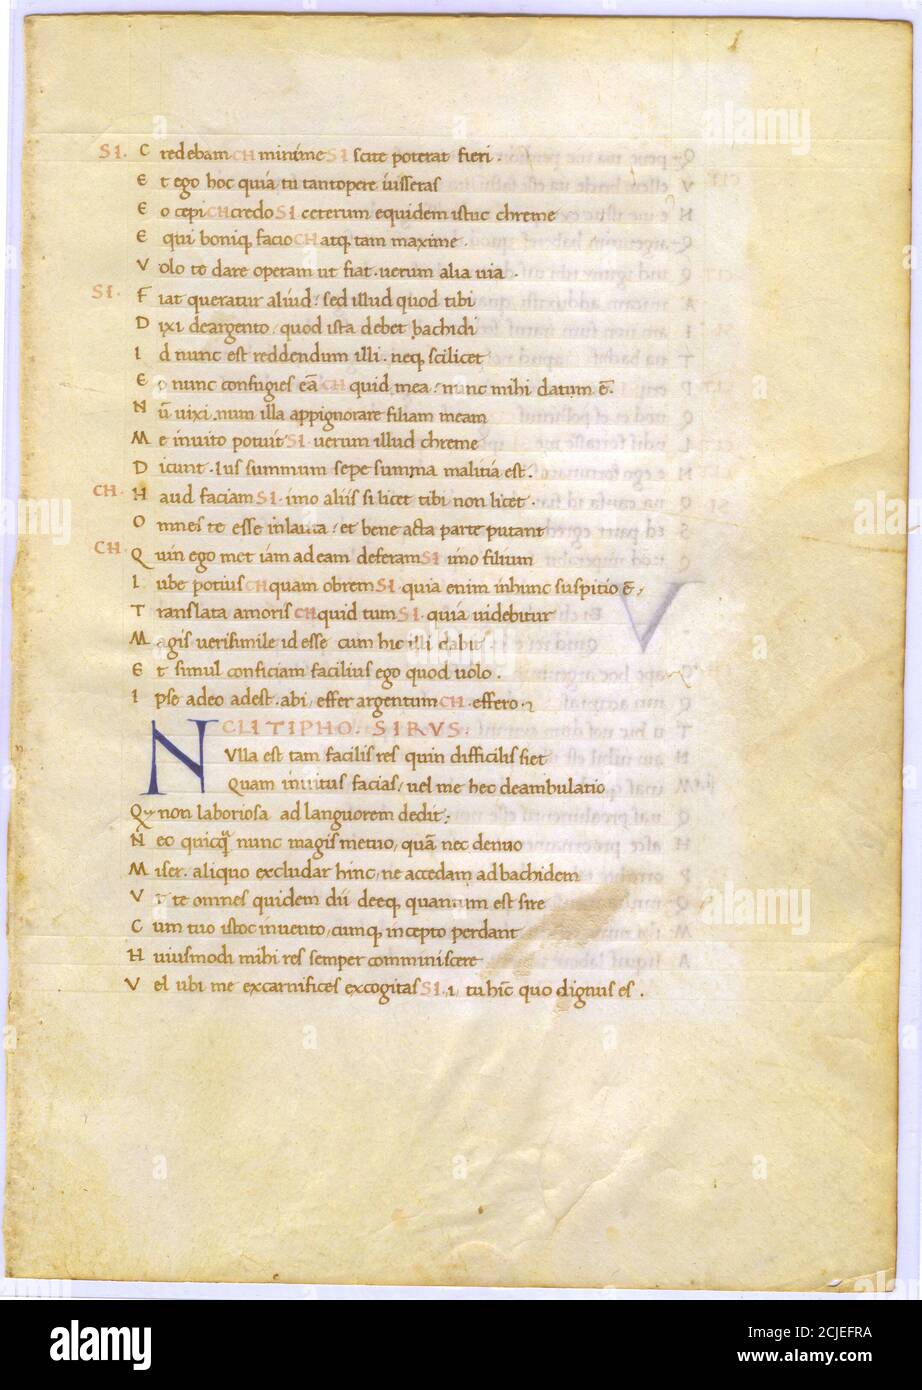 SI. Credebam CH minime SI scite poterat fieri.
Et ego hoc quia tu tantopere iusseras
Eo cepi CH credo SI ceterum equidem istuc chreme
Equi boniq; facio CH atq; tam maxime.
Volo te dare operam ut fiat. uerum alia uia.
SI. Fiat queratur aliud. sed illud quod tibi
Dixi deargento, quod ista debet bachidi
Id nunc est reddendum illi. neq; scilicet
Eo nunc confugies eā CH quid mea. nunc mihi datum ē.
Nū uixi. num illa appignorare filiam meam
Me inuito potuit SI. uerum illud chreme
Dicunt. Ius summum sepe summa malitia est.
CH. Haud faciam SI. imo aliis si licet tibi non licet.
Omnes te esse inlauta, et bene acta parte putant
CH. Quin ego met iam ad eam deferam SI imo filium
Iube potius CH quam obrem SI. quia enim inhunc suspitio ē,
Translata amoris CH quid tum SI. quia uidebitur
Magis uerisimile id esse cum hic illi dabit.
Et simul conficiam facilius ego quod uolo.
Ipse adeo adest. abi, effer argentum CH. effero.
CLITIPHO. SIRVS.
NVlla est tam facilis res quin difficilis fiet
Quam inuitus facias, uel me hec deambulatio
Q non laboriosa ad languorem dedit.
Ñeo quicq̄ nunc magis metuo, quā nec denuo
Miser. aliquo excludar hinc, ne accedam ad bachidem
Vt te omnes quidem dii deeq; quantum est sire
Cum tuo istoc inuento, cunq; incepto perdant
Huiusmodi mihi res semper comminiscere
Vel ubi me excarnifices excogitas SI. i, tu hīc quo dignus es.
alamy
2CJEFRA
www.alamy.com